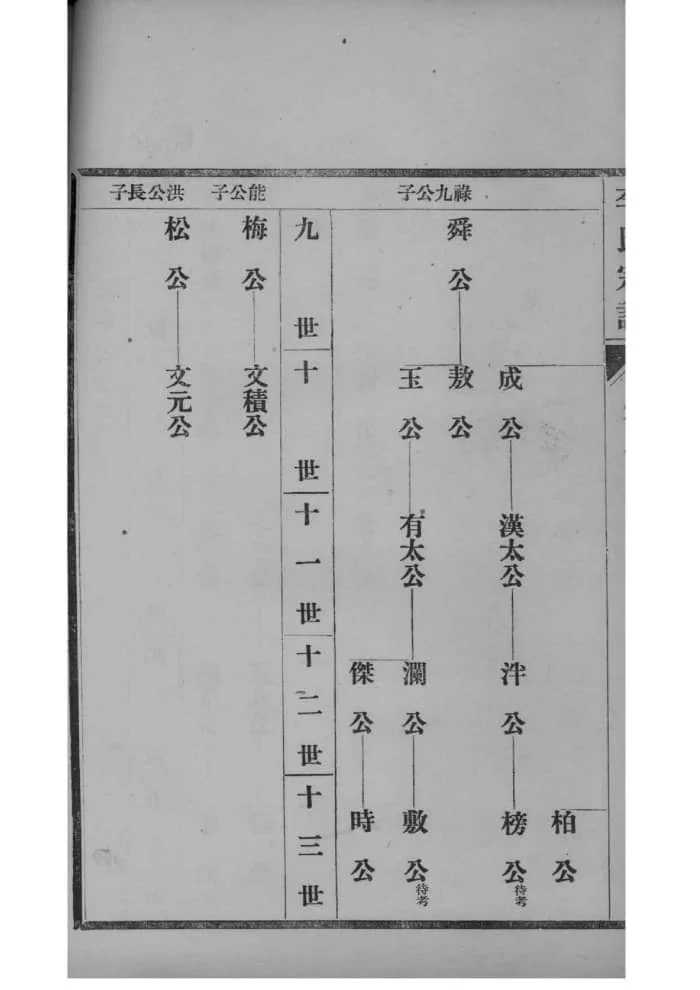 氏宗譜
祿九公子
舜公
成公
敖公
玉公
漢太公
有太公
泮公
瀾公
傑公
柏公
榜公待考
敷公待考
時公
九世
十世
十一世
十二世
十三世
能公子
梅公
文積公
洪公長子
松公
文元公